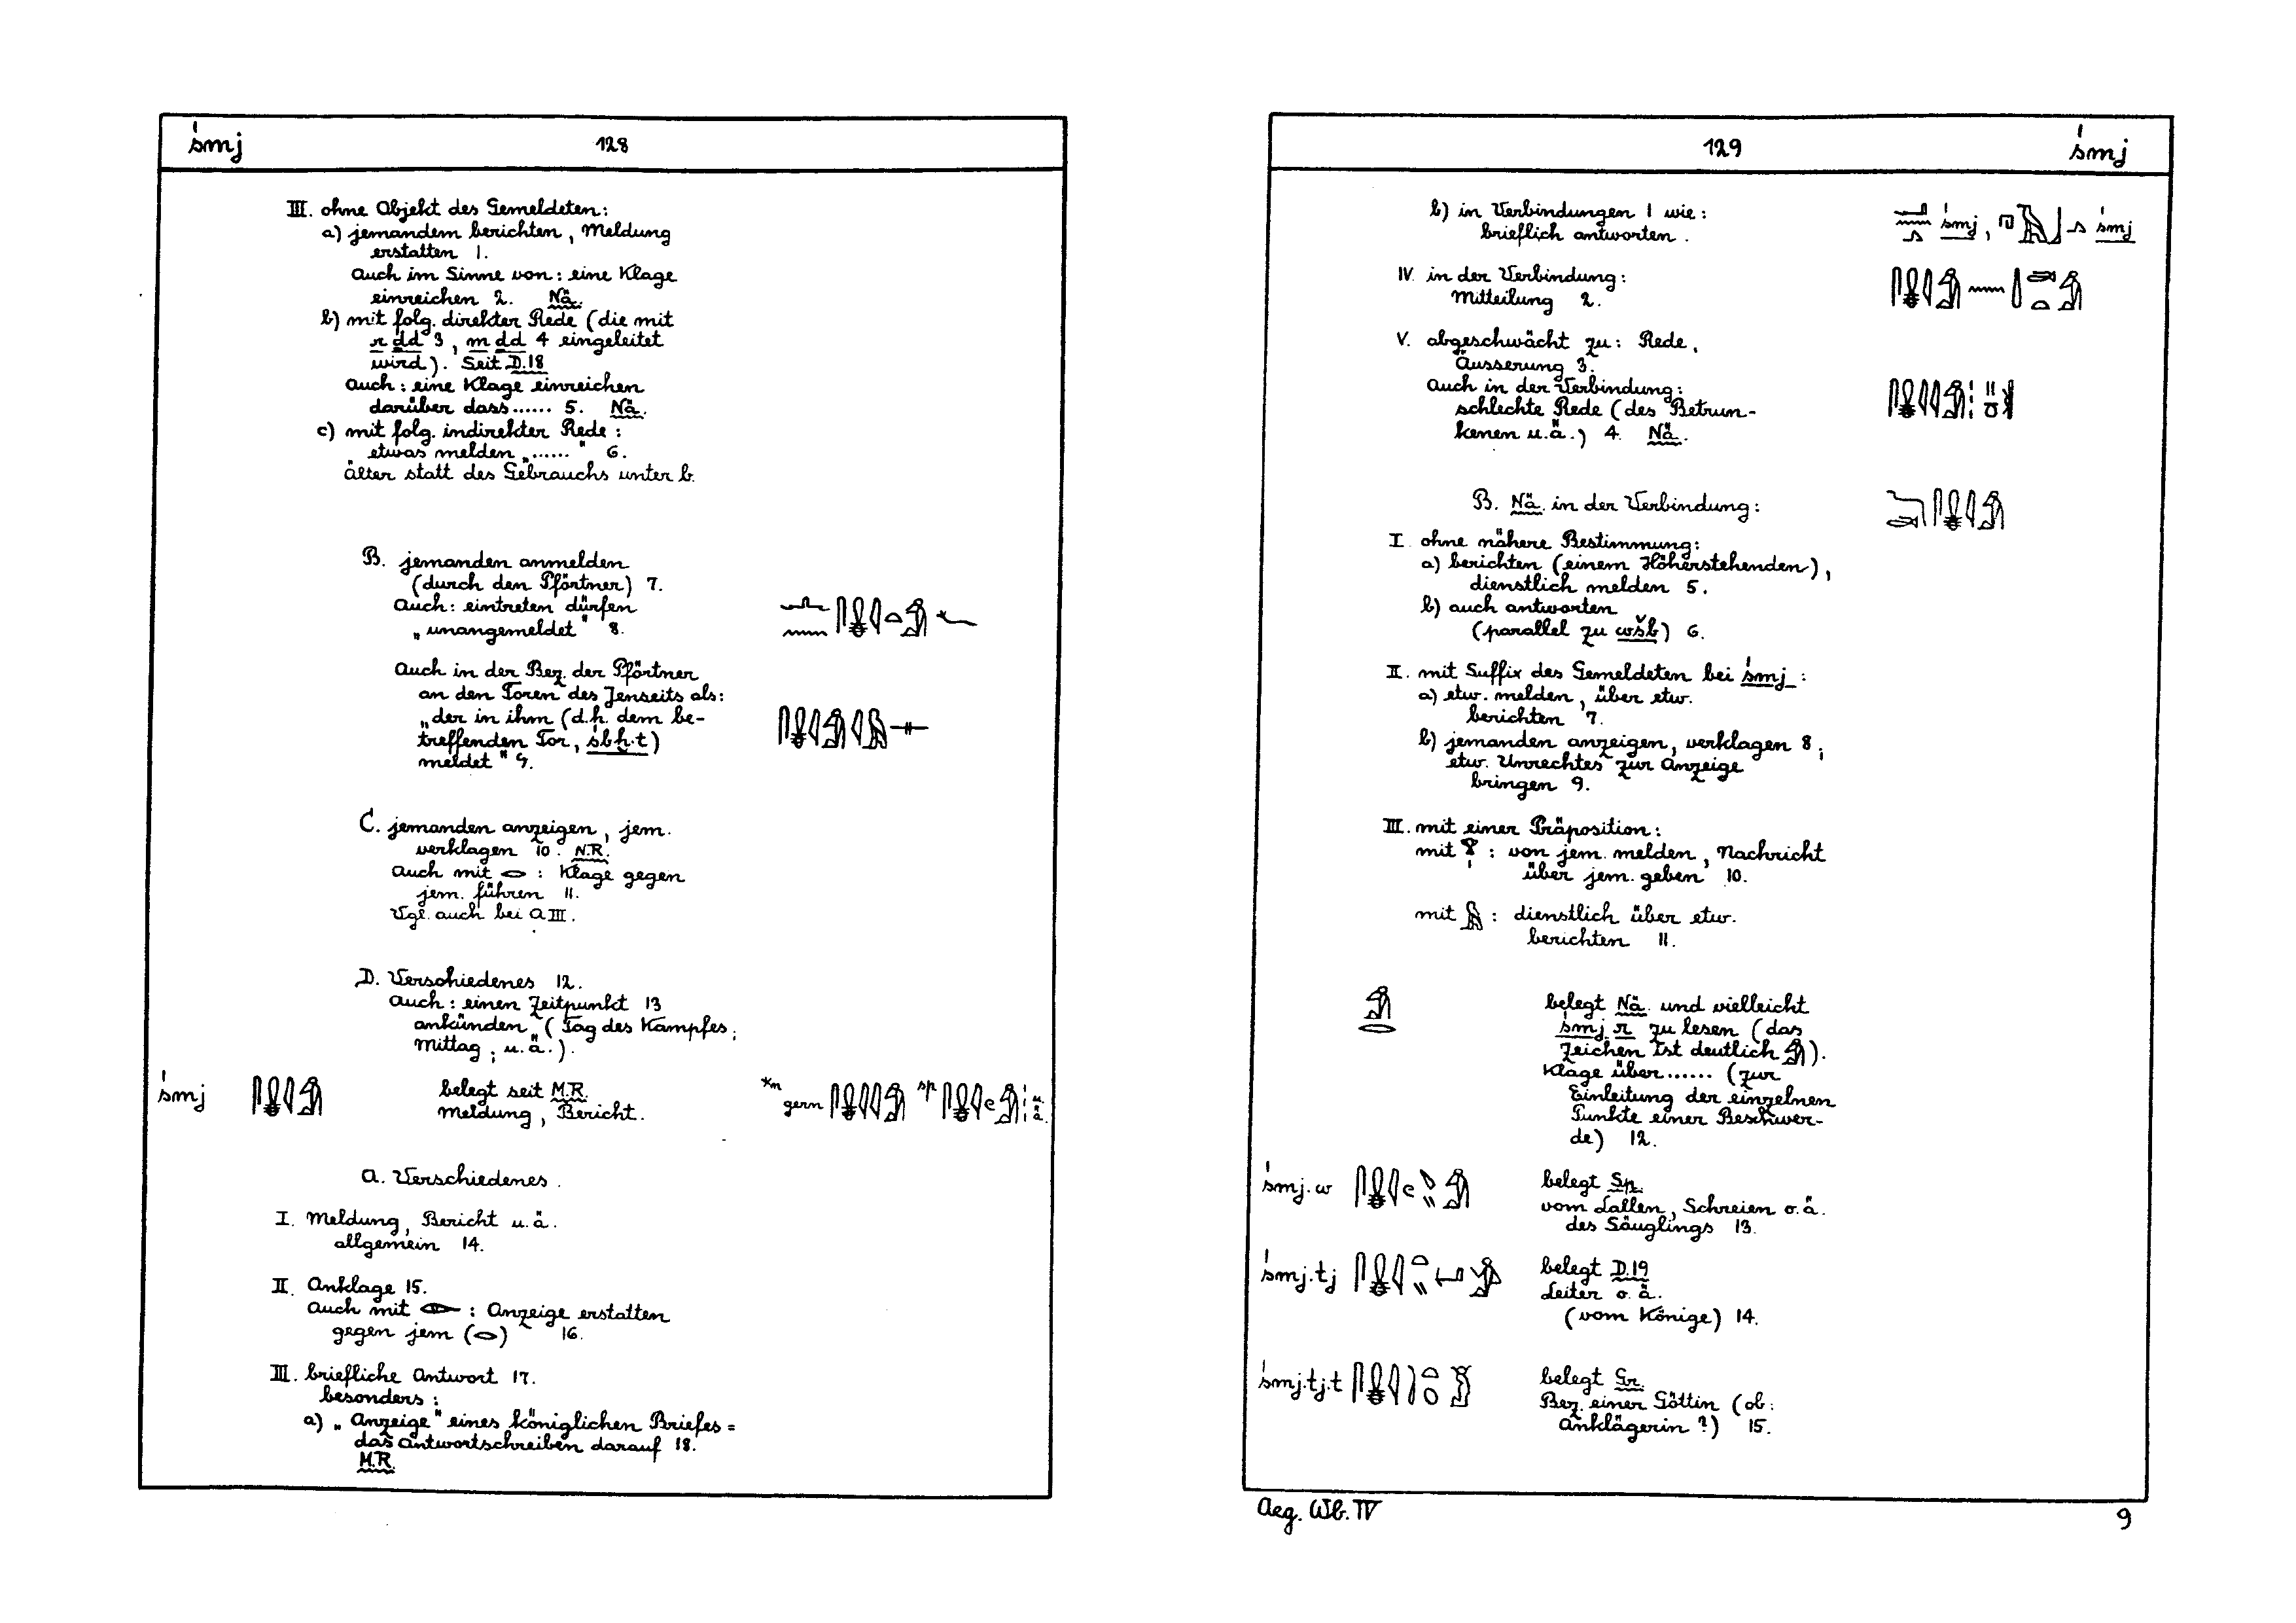 śmj 128
III. ohne Objekt des Gemeldeten:
a) jemandem berichten, Meldung
erstatten 1.
Auch im Sinne von: eine Klage
einreichen 2. Nä.
b) mit folg. direkter Rede (die mit
r ḏd 3, m ḏd 4 eingeleitet
wird). Seit D.18
Auch: eine Klage einreichen
darüber dass...... 5. Nä.
c) mit folg. indirekter Rede:
etwas melden „......" 6.
Älter statt des Gebrauchs unter b.
B. jemanden anmelden
(durch den Pförtner) 7.
Auch: eintreten dürfen
„unangemeldet" 8.
Auch in der Bez. der Pförtner
an den Toren des Jenseits als:
„der in ihm (d.h. dem be-
treffenden Tor, śbḫ.t)
meldet" 9.
C. jemanden anzeigen, jem.
verklagen 10. N.R.
Auch mit 𓂋 : Klage gegen
jem. führen 11.
Vgl. auch bei A III.
D. Verschiedenes 12.
Auch: einen Zeitpunkt 13
ankünden (Tag des Kampfes;
Mittag; u.ä.).
śmj belegt seit M.R. *m
Meldung, Bericht. gern sp u.ä.
A. Verschiedenes.
I. Meldung, Bericht u.ä.
allgemein 14.
II. Anklage 15.
Auch mit 𓁹 : Anzeige erstatten
gegen jem (𓂋) 16.
III. briefliche Antwort 17.
besonders:
a) „Anzeige" eines königlichen Briefes =
das Antwortschreiben darauf 18.
M.R.
129 śmj
b) in Verbindungen 1 wie: śmj, śmj
brieflich antworten.
IV. in der Verbindung:
Mitteilung 2.
V. abgeschwächt zu: Rede,
Äusserung 3.
Auch in der Verbindung:
schlechte Rede (des Betrun-
kenen u.ä.) 4. Nä.
B. Nä. in der Verbindung:
I. ohne nähere Bestimmung:
a) berichten (einem Höherstehenden),
dienstlich melden 5.
b) auch antworten
(parallel zu wšb) 6.
II. mit Suffix des Gemeldeten bei śmj:
a) etw. melden, über etw.
berichten 7.
b) jemanden anzeigen, verklagen 8;
etw. Unrechtes zur Anzeige
bringen 9.
III. mit einer Präposition:
mit 𓁷 : von jem. melden, Nachricht
über jem. geben 10.
mit 𓅓 : dienstlich über etw.
berichten 11.
𓀁𓂋 belegt Nä. und vielleicht
śmj r zu lesen (das
Zeichen ist deutlich 𓀁).
Klage über...... (zur
Einleitung der einzelnen
Punkte einer Beschwer-
de) 12.
śmj.w belegt Sp.
vom Lallen, Schreien o.ä.
des Säuglings 13.
śmj.tj belegt D.19
Leiter o.ä.
(vom Könige) 14.
śmj.tj.t belegt Gr.
Bez. einer Göttin (ob:
Anklägerin?) 15.
Aeg. Wb. IV 9